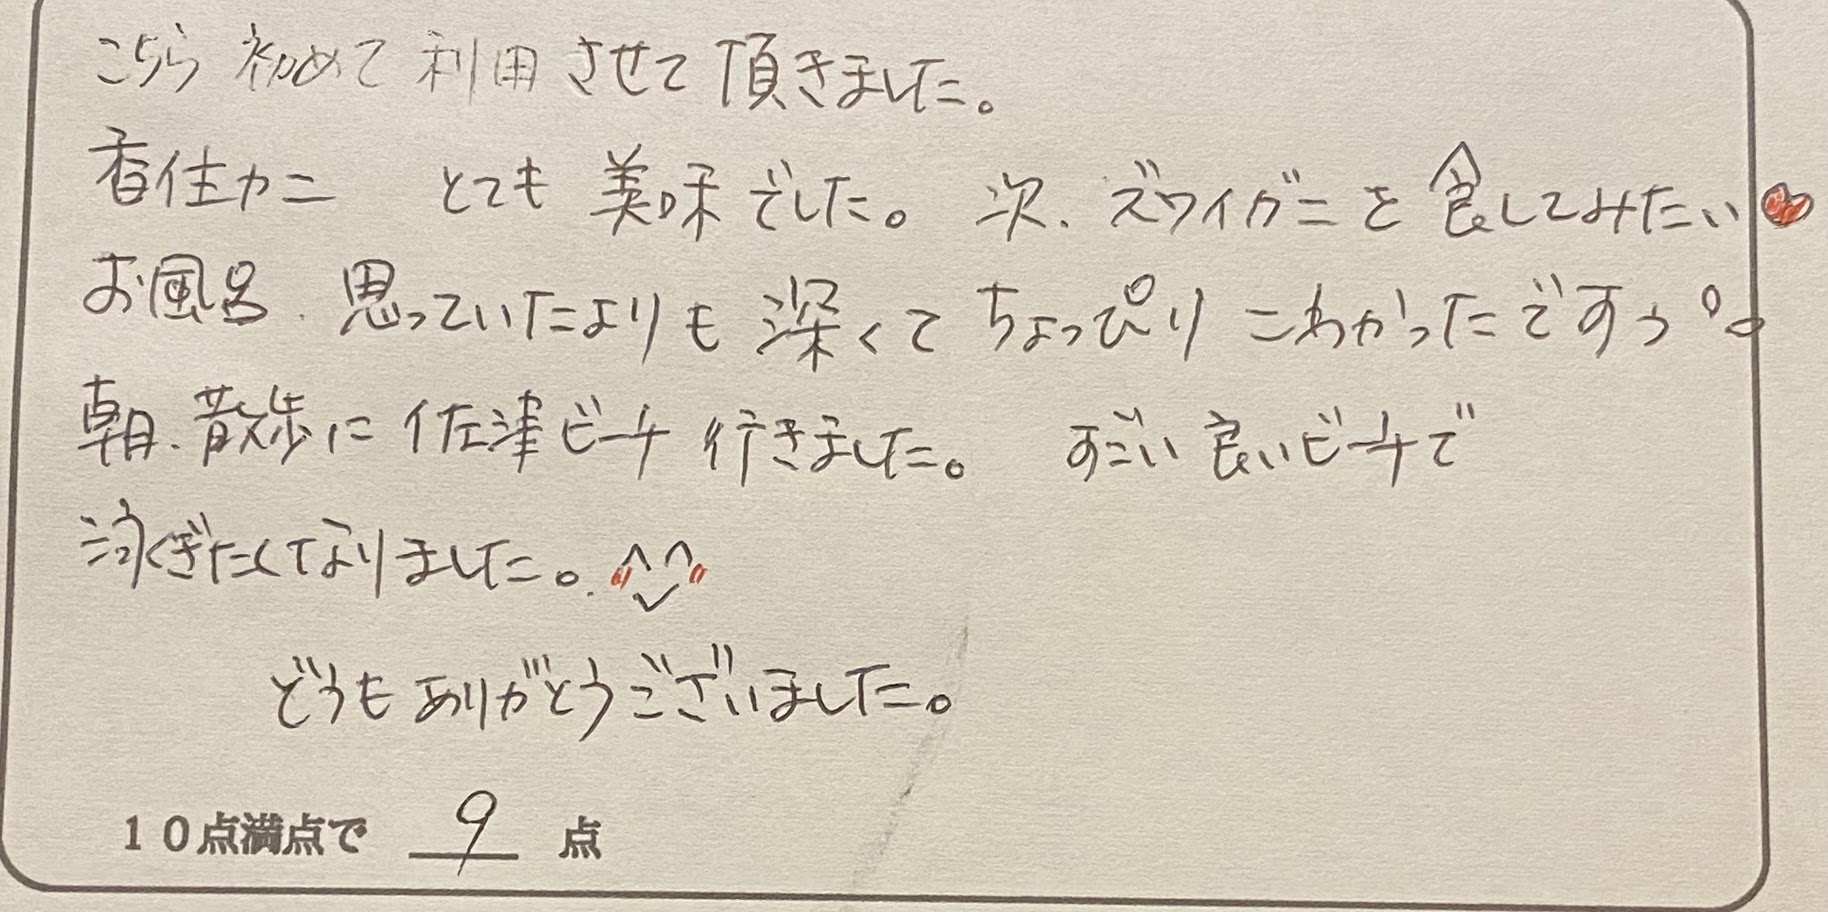 こちら 初めて 利用 させて 頂きました。
香住カニ とても 美味でした。次、ズワイガニを食してみたい
お風呂、思っていたよりも 深くて ちょっぴり こわかったですぅ。
朝、散歩に 佐津ビーチ 行きました。 すごい 良いビーチで
泳ぎたくなりました。
どうもありがとうございました。
10点満点で 9 点